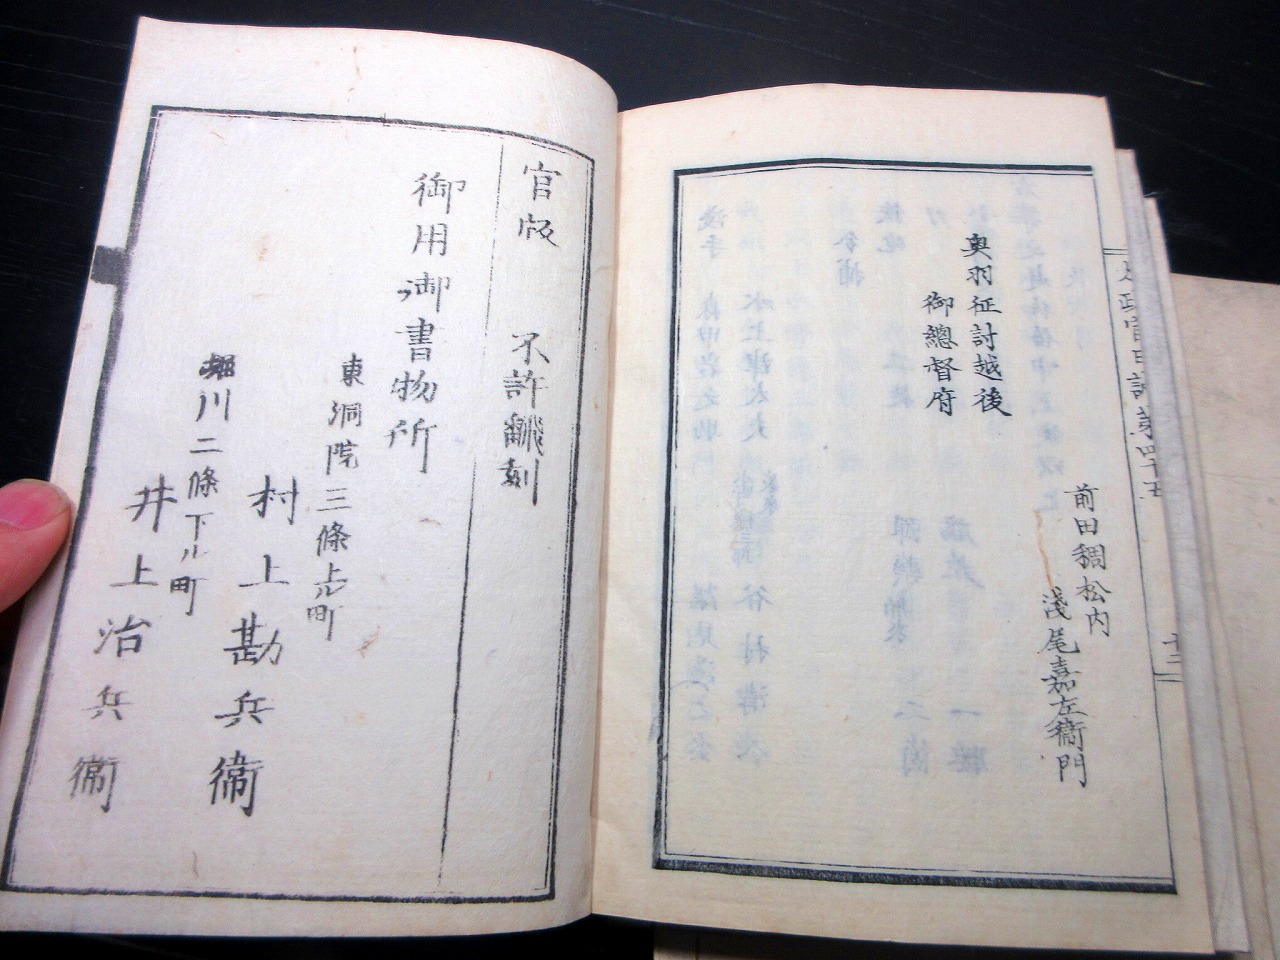 太政官日誌第四十五
十二
前田稠松内
淺尾嘉左衞門
奥羽征討越後
御總督府
官版 不許飜刻
御用御書物所
東洞院三條上ル町
村上勘兵衞
堀川二條下ル町
井上治兵衞